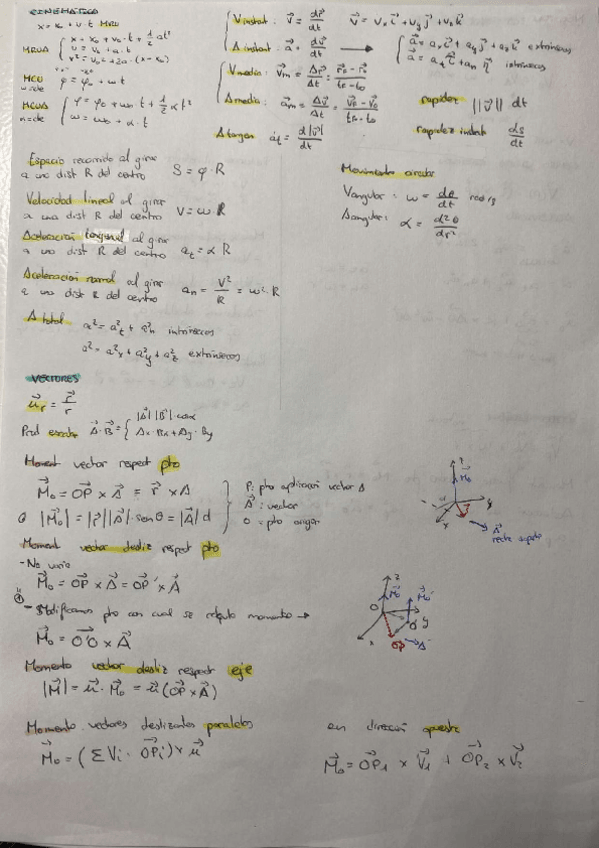 CINEMÁTICA
x = x₀ + v · t MRU
MRUA { x = x₀ + v₀ · t + 1/2 at²
v = v₀ + a · t
v² = v₀² + 2a · (x - x₀)
MCU φ = φ₀ + ωt
ω=cte
MCUA { φ = φ₀ + ω₀ · t + 1/2 α t²
α=cte ω = ω₀ + α · t
V instant: v⃗ = dr⃗/dt v⃗ = vₓ i⃗ + v_y j⃗ + v_z k⃗
A instant: a⃗ = dv⃗/dt → { a⃗ = aₓ i⃗ + a_y j⃗ + a_z k⃗ extrínsecas
a⃗ = a_t τ⃗ + a_n η⃗ intrínsecas
V media: v⃗_m = Δr⃗/Δt = (r⃗_f - r⃗_0)/(t_f - t_0)
A media: a⃗_m = Δv⃗/Δt = (v⃗_f - v⃗_0)/(t_f - t_0)
rapidez ||v⃗|| dt
A tangen a⃗_t = d|v⃗|/dt
rapidez instant ds/dt
Espacio recorrido al girar
a una dist R del centro S = φ · R
Velocidad lineal al girar
a una dist R del centro V = ω · R
Aceleración tangencial al girar
a una dist R del centro a_t = α R
Aceleración normal al girar
a una dist R del centro a_n = V²/R = ω² · R
A total a² = a²_t + a²_n intrínsecos
a² = a²_x + a²_y + a²_z extrínsecos
Movimiento circular
V angular: ω = dθ/dt rad/s
A angular: α = d²θ/dt²
VECTORES
u⃗_r = r⃗/r
Prod escalar A⃗ · B⃗ = { |A⃗| |B⃗| · cos α
Ax · Bx + Ay · By
Moment vector respect pto
M⃗₀ = OP⃗ × A⃗ = r⃗ × A
|M⃗₀| = |r⃗||A⃗| · sen θ = |A⃗| d
P: pto aplicación vector A
A⃗: vector
O: pto origen
z
M⃗₀
y
x
r⃗
A⃗
Moment vector desliz respect pto
- No varía
M⃗₀ = OP⃗ × A⃗ = OP⃗' × A⃗
- Si modificamos pto con cual se calcula momento →
M⃗₀ = O'O⃗ × A⃗
z
M⃗₀
M⃗₀'
O
O'
y
x
OP
A⃗
Momento vector desliz respect eje
|M⃗| = u⃗ · M⃗₀ = u⃗ (OP⃗ × A⃗)
Momento vectores deslizantes paralelos
M⃗₀ = (Σ Vi · OP⃗i) × u⃗
en dirección opuesta
M⃗₀ = OP⃗₁ × V⃗₁ + OP⃗₂ × V⃗₂